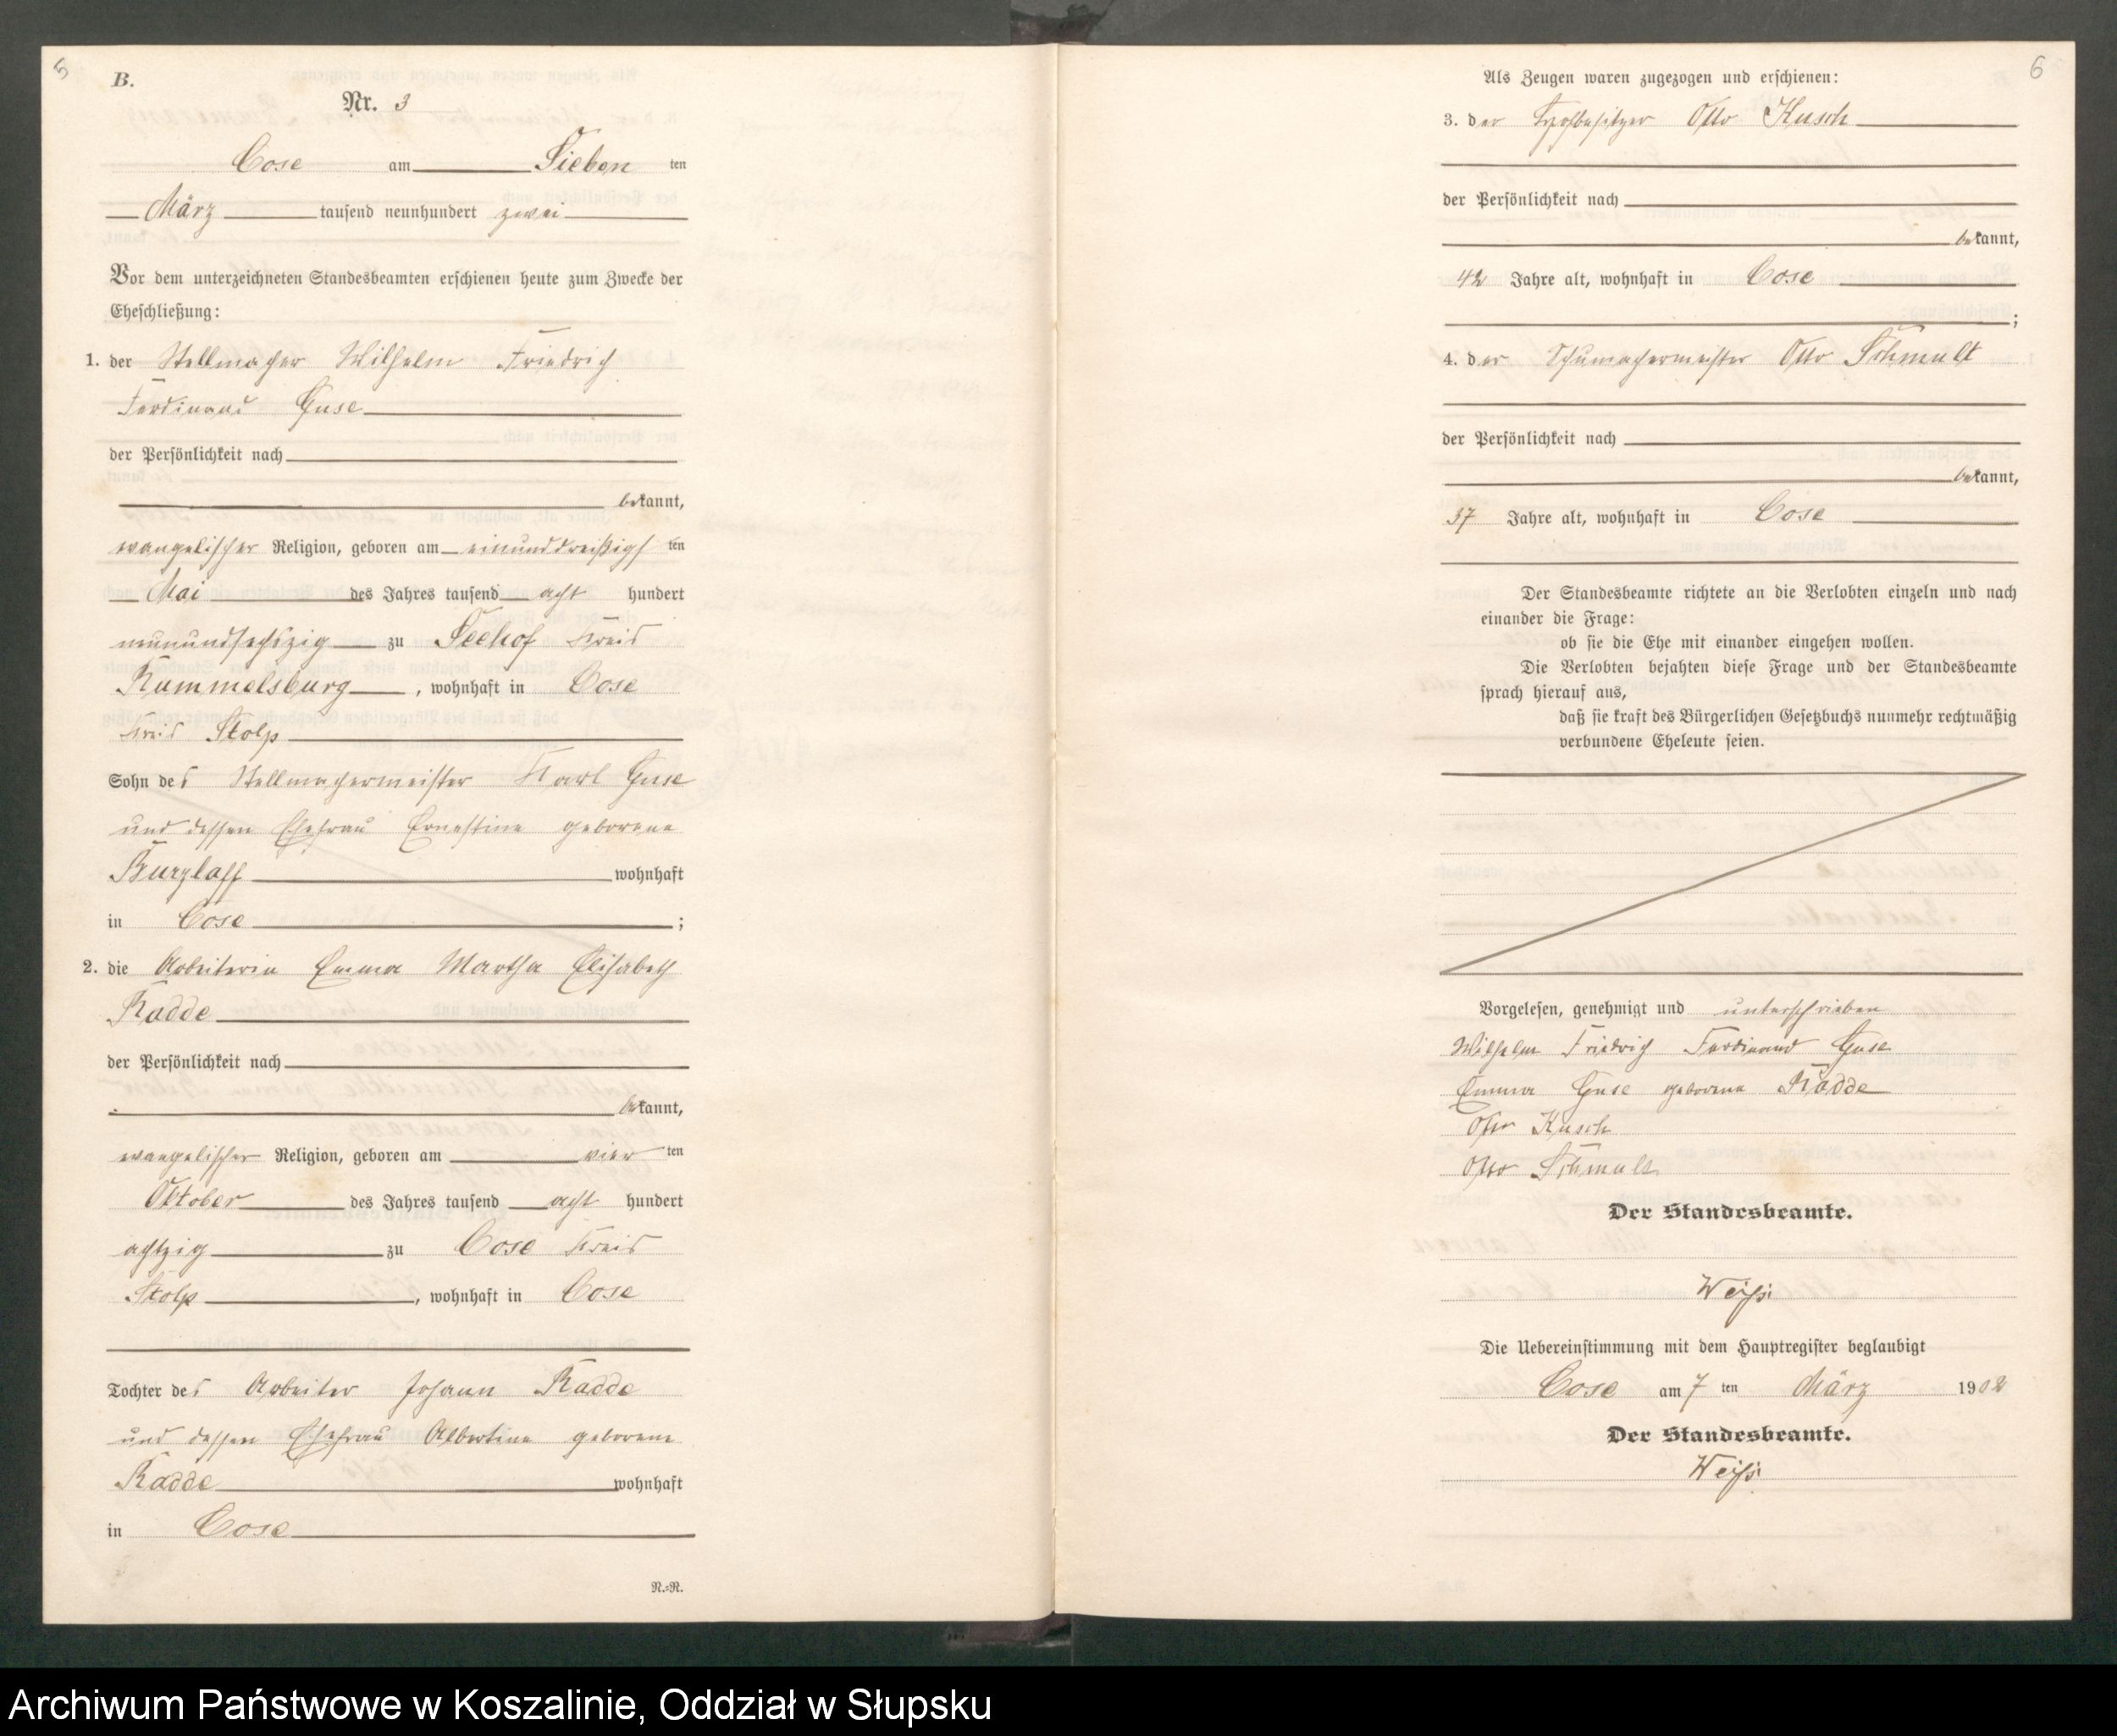 5
B.
Nr. 3
Cose am Sieben ten
März tausend neunhundert zwei
Vor dem unterzeichneten Standesbeamten erschienen heute zum Zwecke der
Eheschließung:
1. der Stellmacher Wilhelm Friedrich
Ferdinand Guse
der Persönlichkeit nach
bekannt,
evangelischer Religion, geboren am einunddreißigs ten
Mai des Jahres tausend acht hundert
neunundsechszig zu Seehof Kreis
Rummelsburg, wohnhaft in Cose
Kreis Stolp
Sohn des Stellmachermeister Karl Guse
und dessen Ehefrau Ernestine geborene
Burzlaff wohnhaft
in Cose;
2. die Arbeiterin Emma Martha Elisabeth
Radde
der Persönlichkeit nach
bekannt,
evangelischer Religion, geboren am vier ten
Oktober des Jahres tausend acht hundert
achtzig zu Cose Kreis
Stolp, wohnhaft in Cose
Tochter des Arbeiter Johann Radde
und dessen Ehefrau Albertine geborene
Radde wohnhaft
in Cose
N.=N.
6
Als Zeugen waren zugezogen und erschienen:
3. der Hofbesitzer Otto Kusch
der Persönlichkeit nach
bekannt,
42 Jahre alt, wohnhaft in Cose
;
4. der Schumachermeister Otto Schmalt
der Persönlichkeit nach
bekannt,
37 Jahre alt, wohnhaft in Cose
Der Standesbeamte richtete an die Verlobten einzeln und nach
einander die Frage:
ob sie die Ehe mit einander eingehen wollen.
Die Verlobten bejahten diese Frage und der Standesbeamte
sprach hierauf aus,
daß sie kraft des Bürgerlichen Gesetzbuchs nunmehr rechtmäßig
verbundene Eheleute seien.
Vorgelesen, genehmigt und unterschrieben
Wilhelm Friedrich Ferdinand Guse
Emma Guse geborene Radde
Otto Kusch
Otto Schmalt
Der Standesbeamte.
Weiß
Die Uebereinstimmung mit dem Hauptregister beglaubigt
Cose am 7 ten März 1902
Der Standesbeamte.
Weiß
Archiwum Państwowe w Koszalinie, Oddział w Słupsku